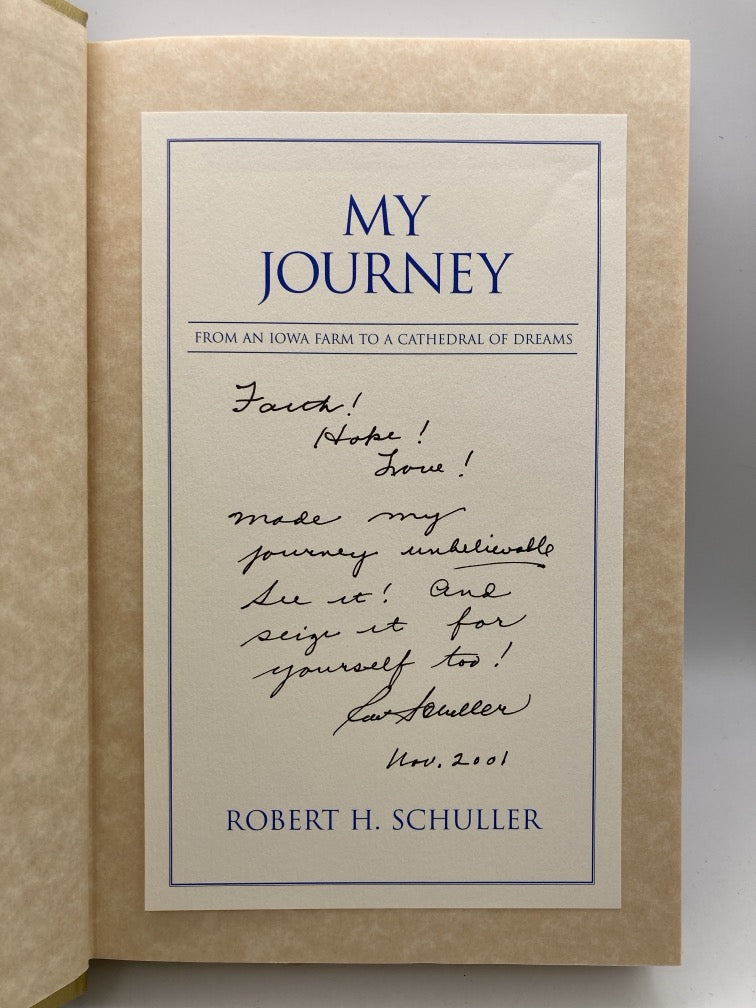 MY
JOURNEY
FROM AN IOWA FARM TO A CATHEDRAL OF DREAMS
Faith!
Hope!
Love!
made my
journey unbelievable
See it! And
seize it for
yourself too!
Schuller
Nov. 2001
ROBERT H. SCHULLER